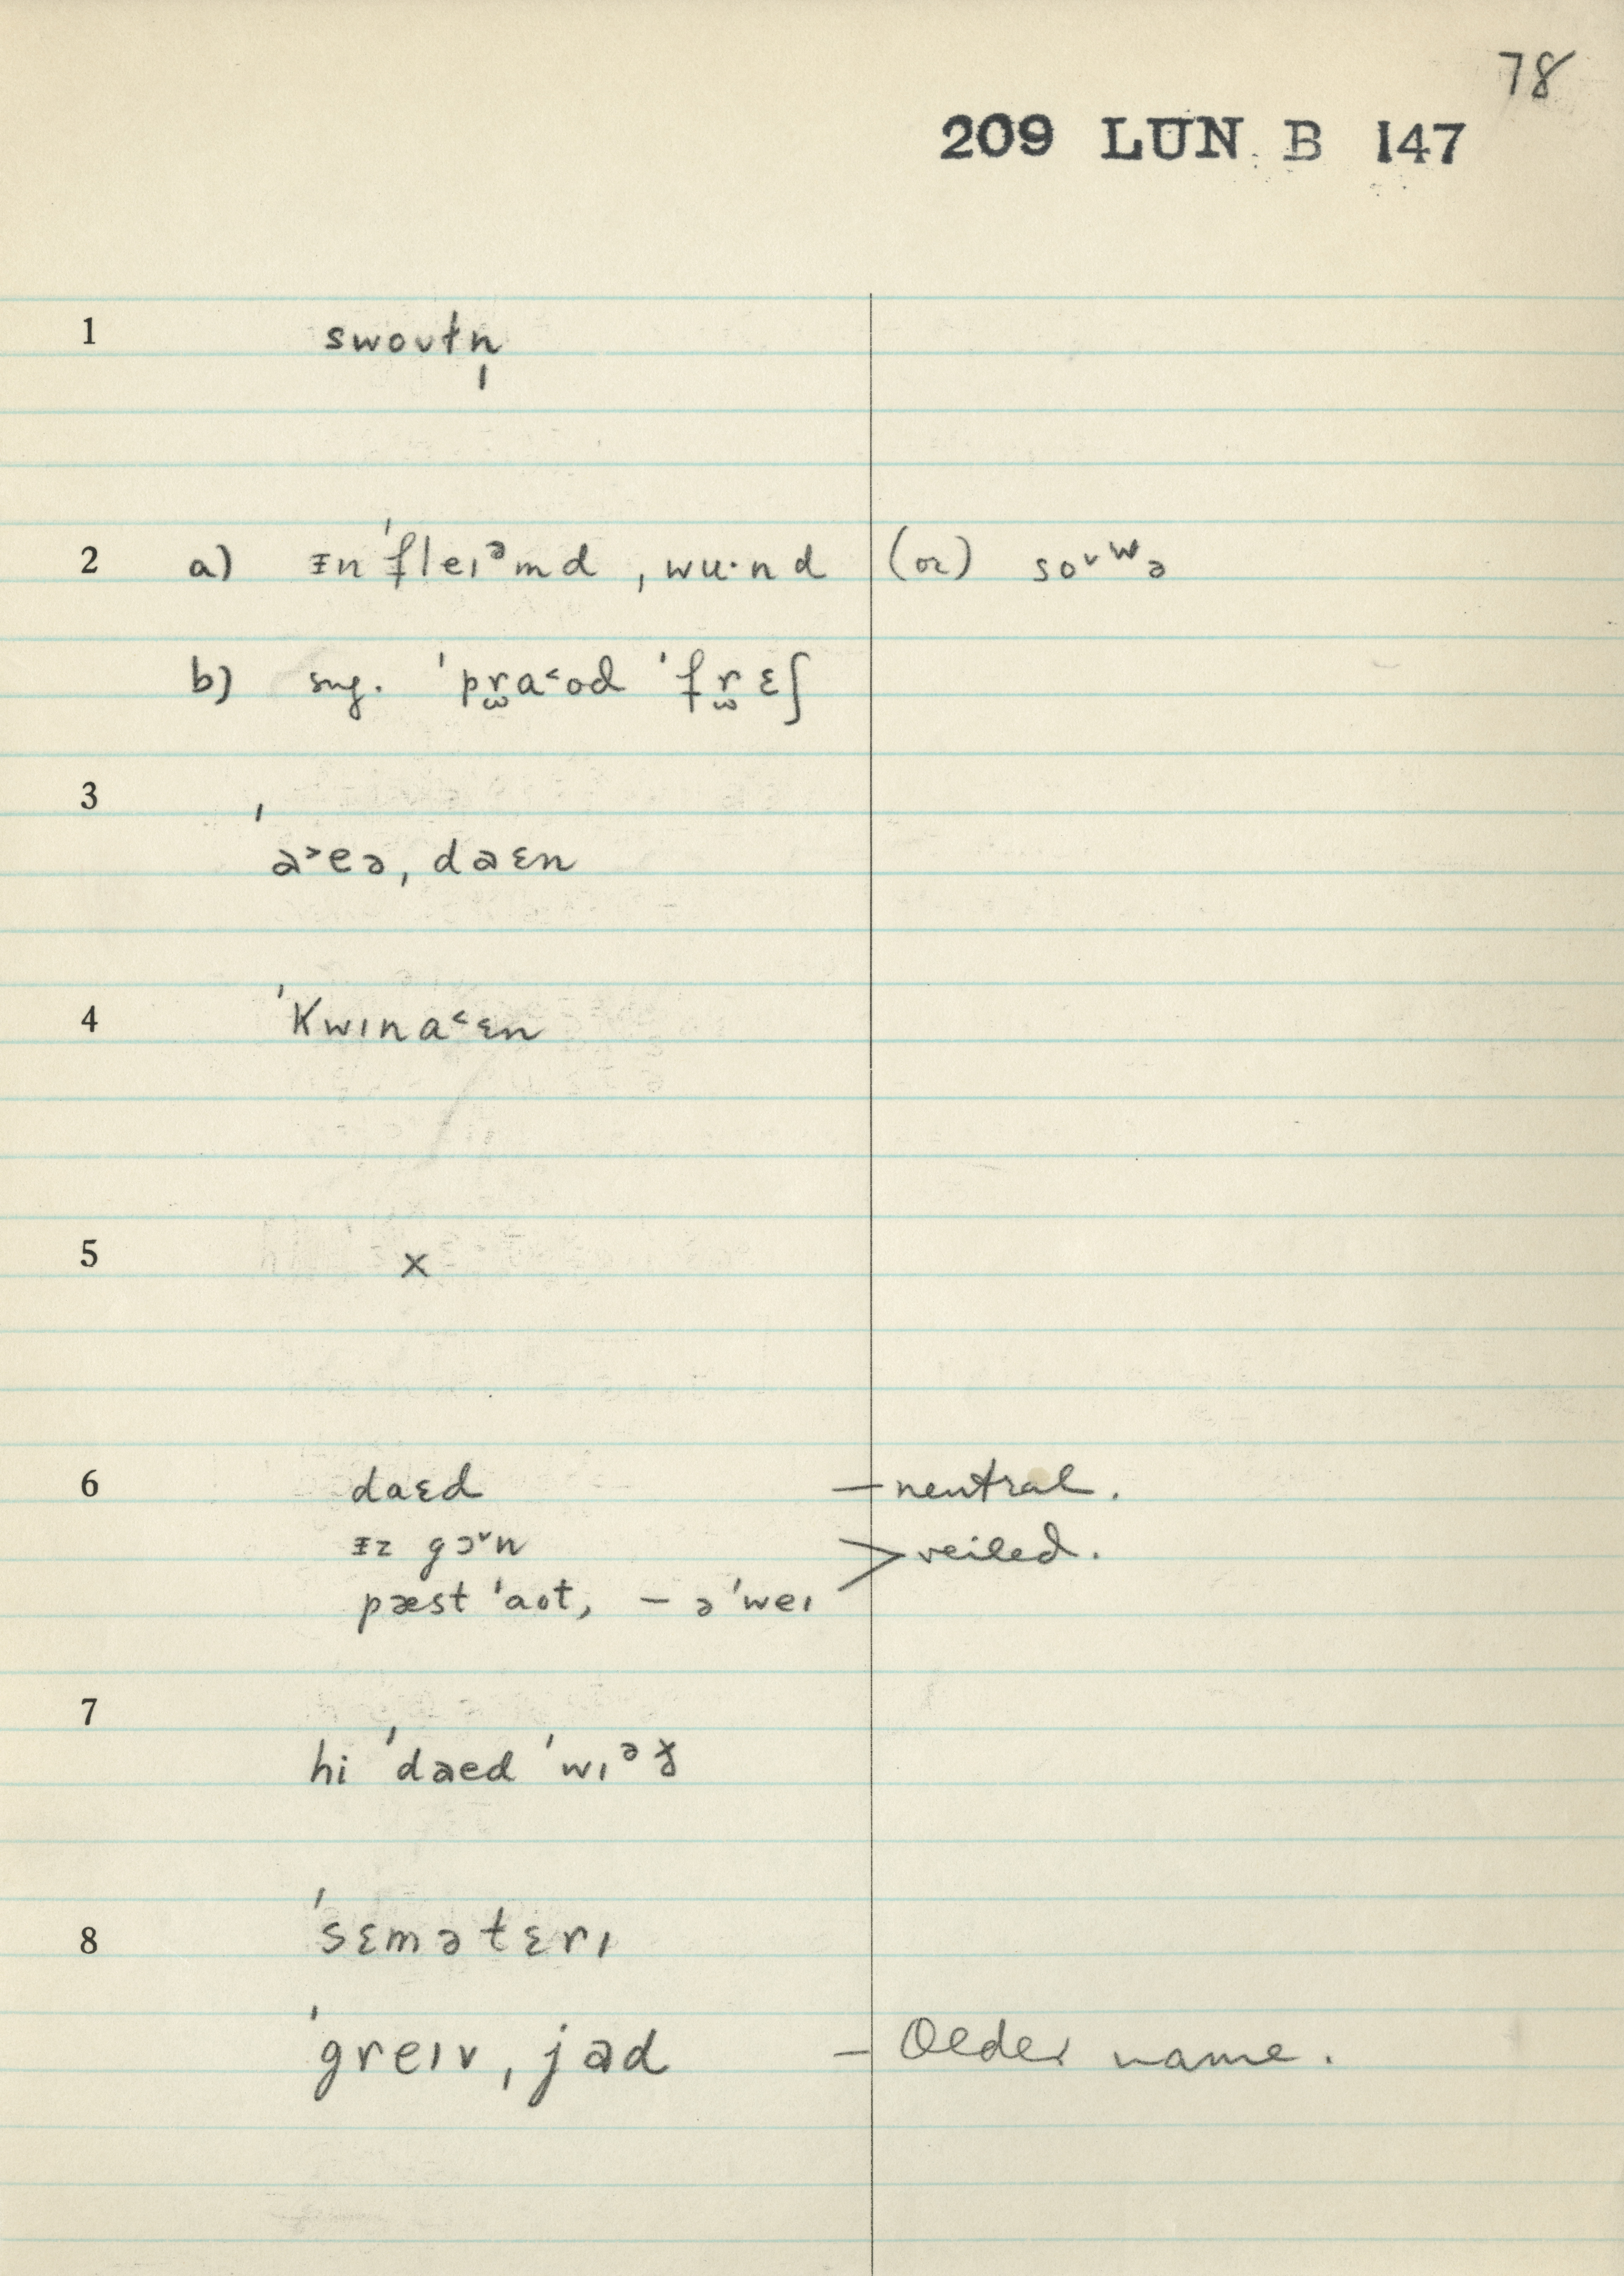 78
209 LUN B 147
1 swoʊtn̩
2 a) ɪn'fleɪᵊmd ˌwu·nd (or) soᴠʷə
b) sng. 'pr̫a˂od 'fr̫ɛʃ
3 'a˃eəˌdaɛn
4 'Kwɪna˂ɛn
5 x
6 daɛd — neutral.
ɪz gɔ˅n > veiled.
pæst 'aot, — ə'weɪ
7 hi 'daed 'wɪᵊð
8 'sɛmətɛrɪ
'greɪvˌjad — Older name.